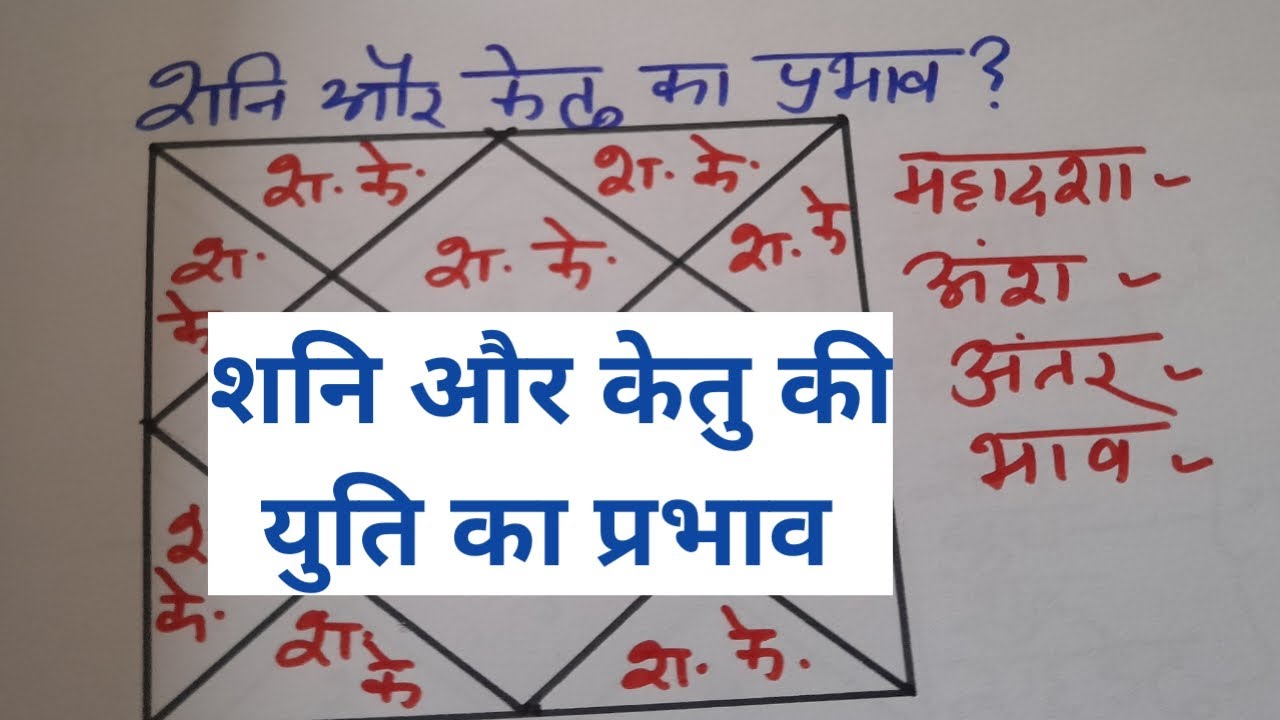 शनि और केतु का प्रभाव ?
श. के.
श. के.
श.
के
श. के.
श. के
महादशा -
अंश -
अंतर -
भाव -
शनि और केतु की
युति का प्रभाव
श
के.
श. के
श. के.